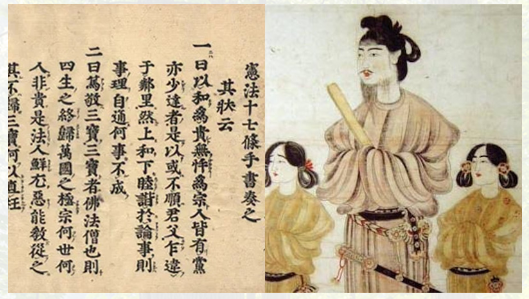 憲法十七條手書奏之
其狀云
一曰以和爲貴無忤爲宗人皆有黨
亦少達者是以或不順君父乍違
于鄰里然上和下睦諧於論事則
事理自通何事不成
二曰篤敬三寶三寶者佛法僧也則
四生之終歸萬國之極宗何世何
人非貴是法人鮮尤惡能教從之
其不歸三寶何以直枉